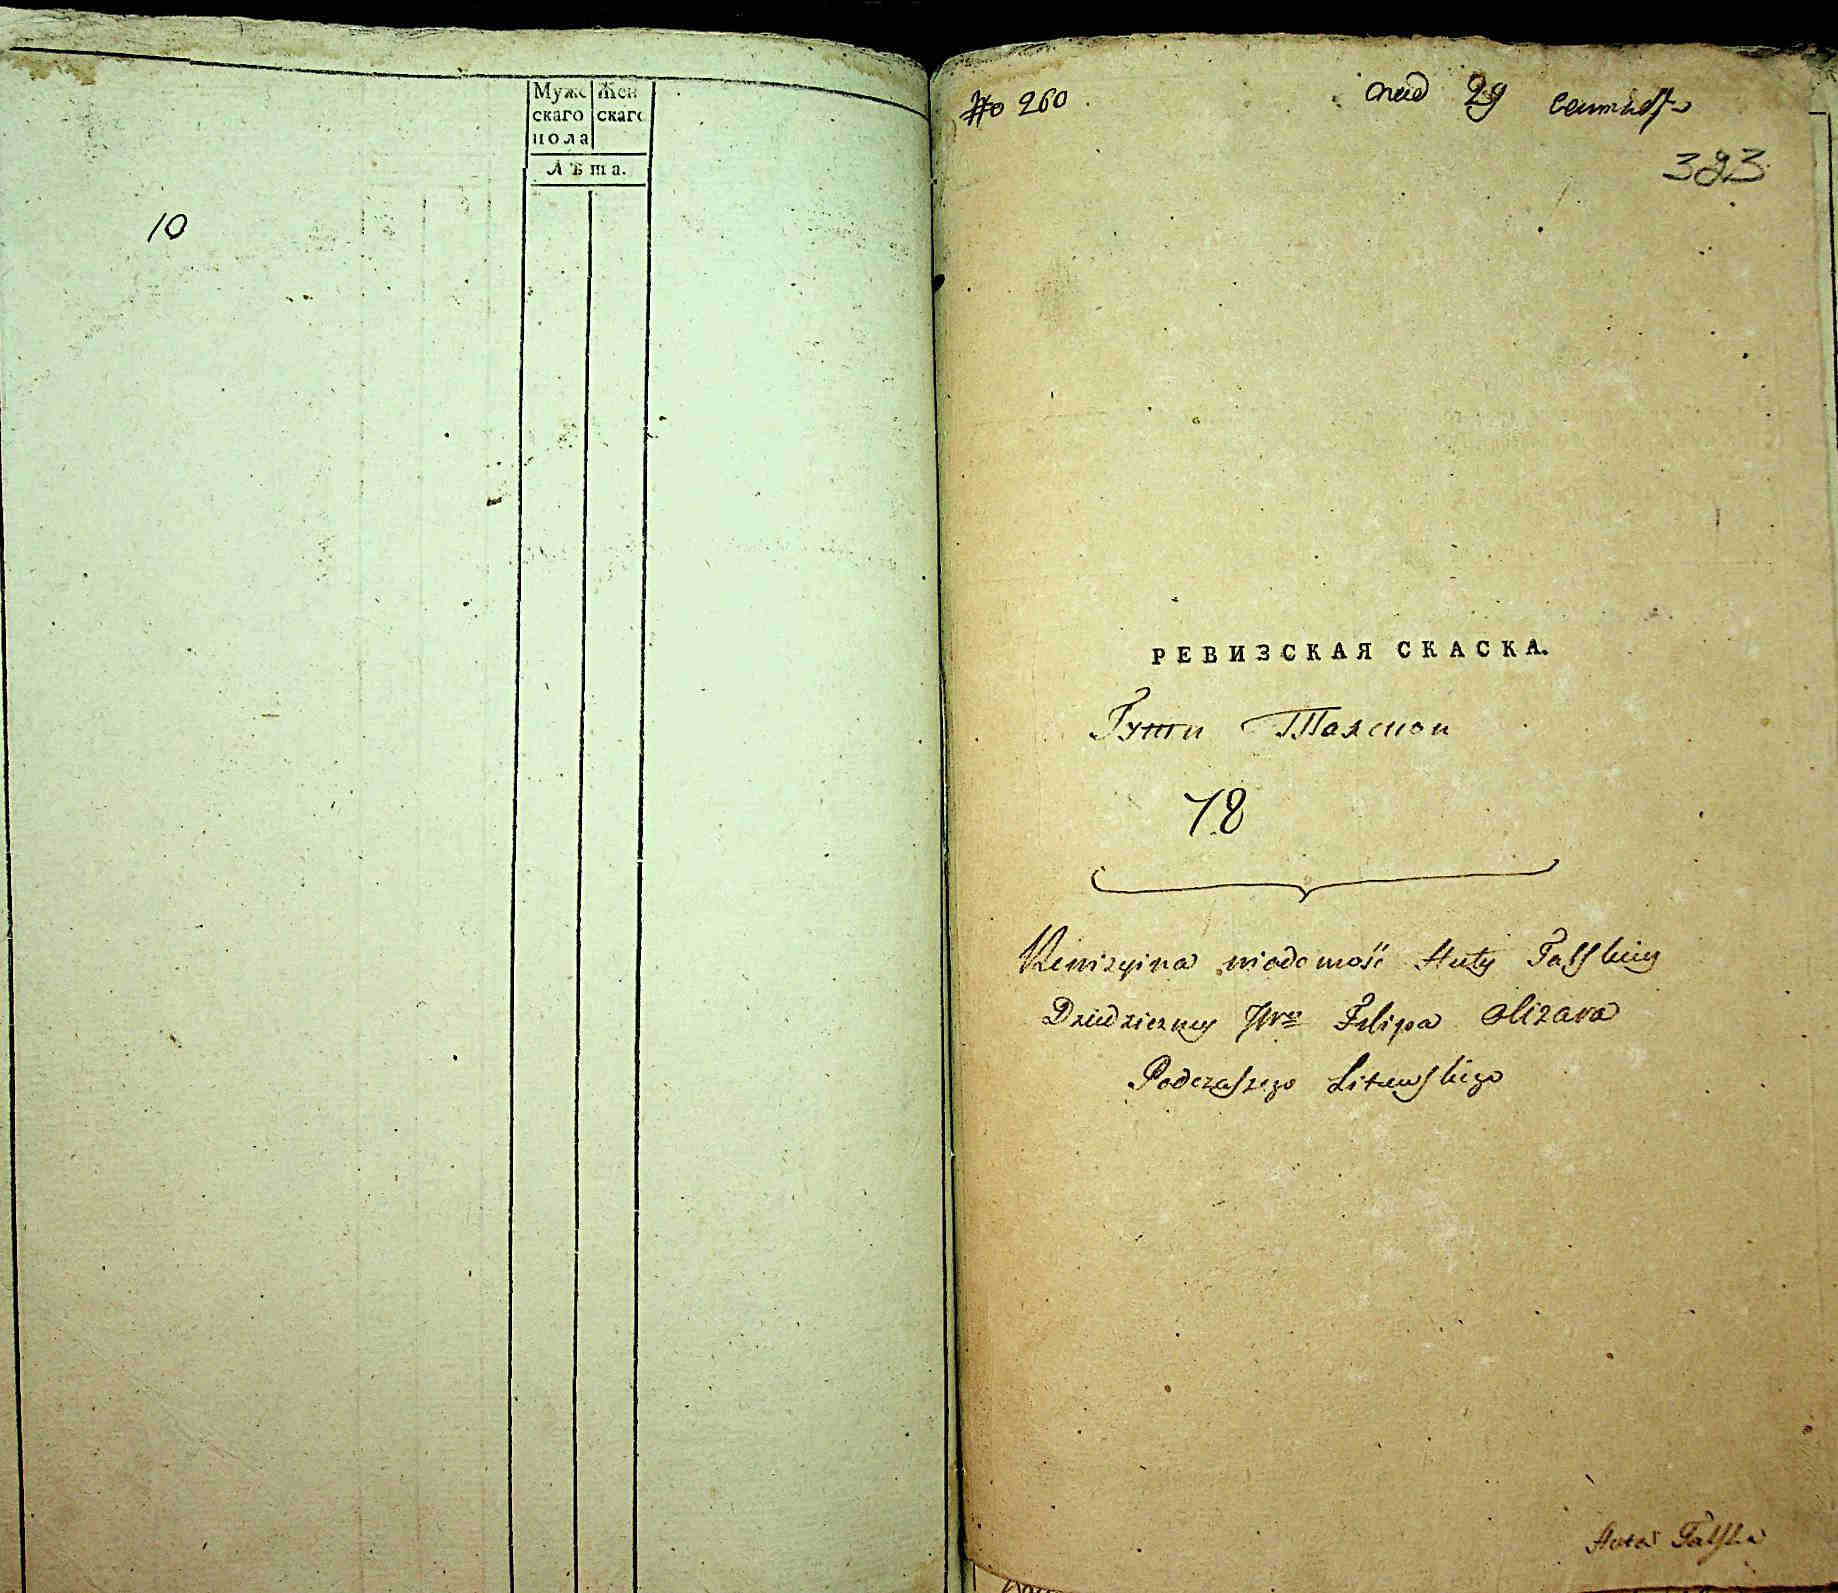 Муже Жен
скаго скаго
пола
Лѣта.
10
№ 260
под 29 Сентября
393
РЕВИЗСКАЯ СКАСКА.
Гути Талской
78
Rewizyina wiadomość Huty Talskiey
Dziedziczney JWo Filipa Olizara
Podczaszego Litewskiego
Huta Talska